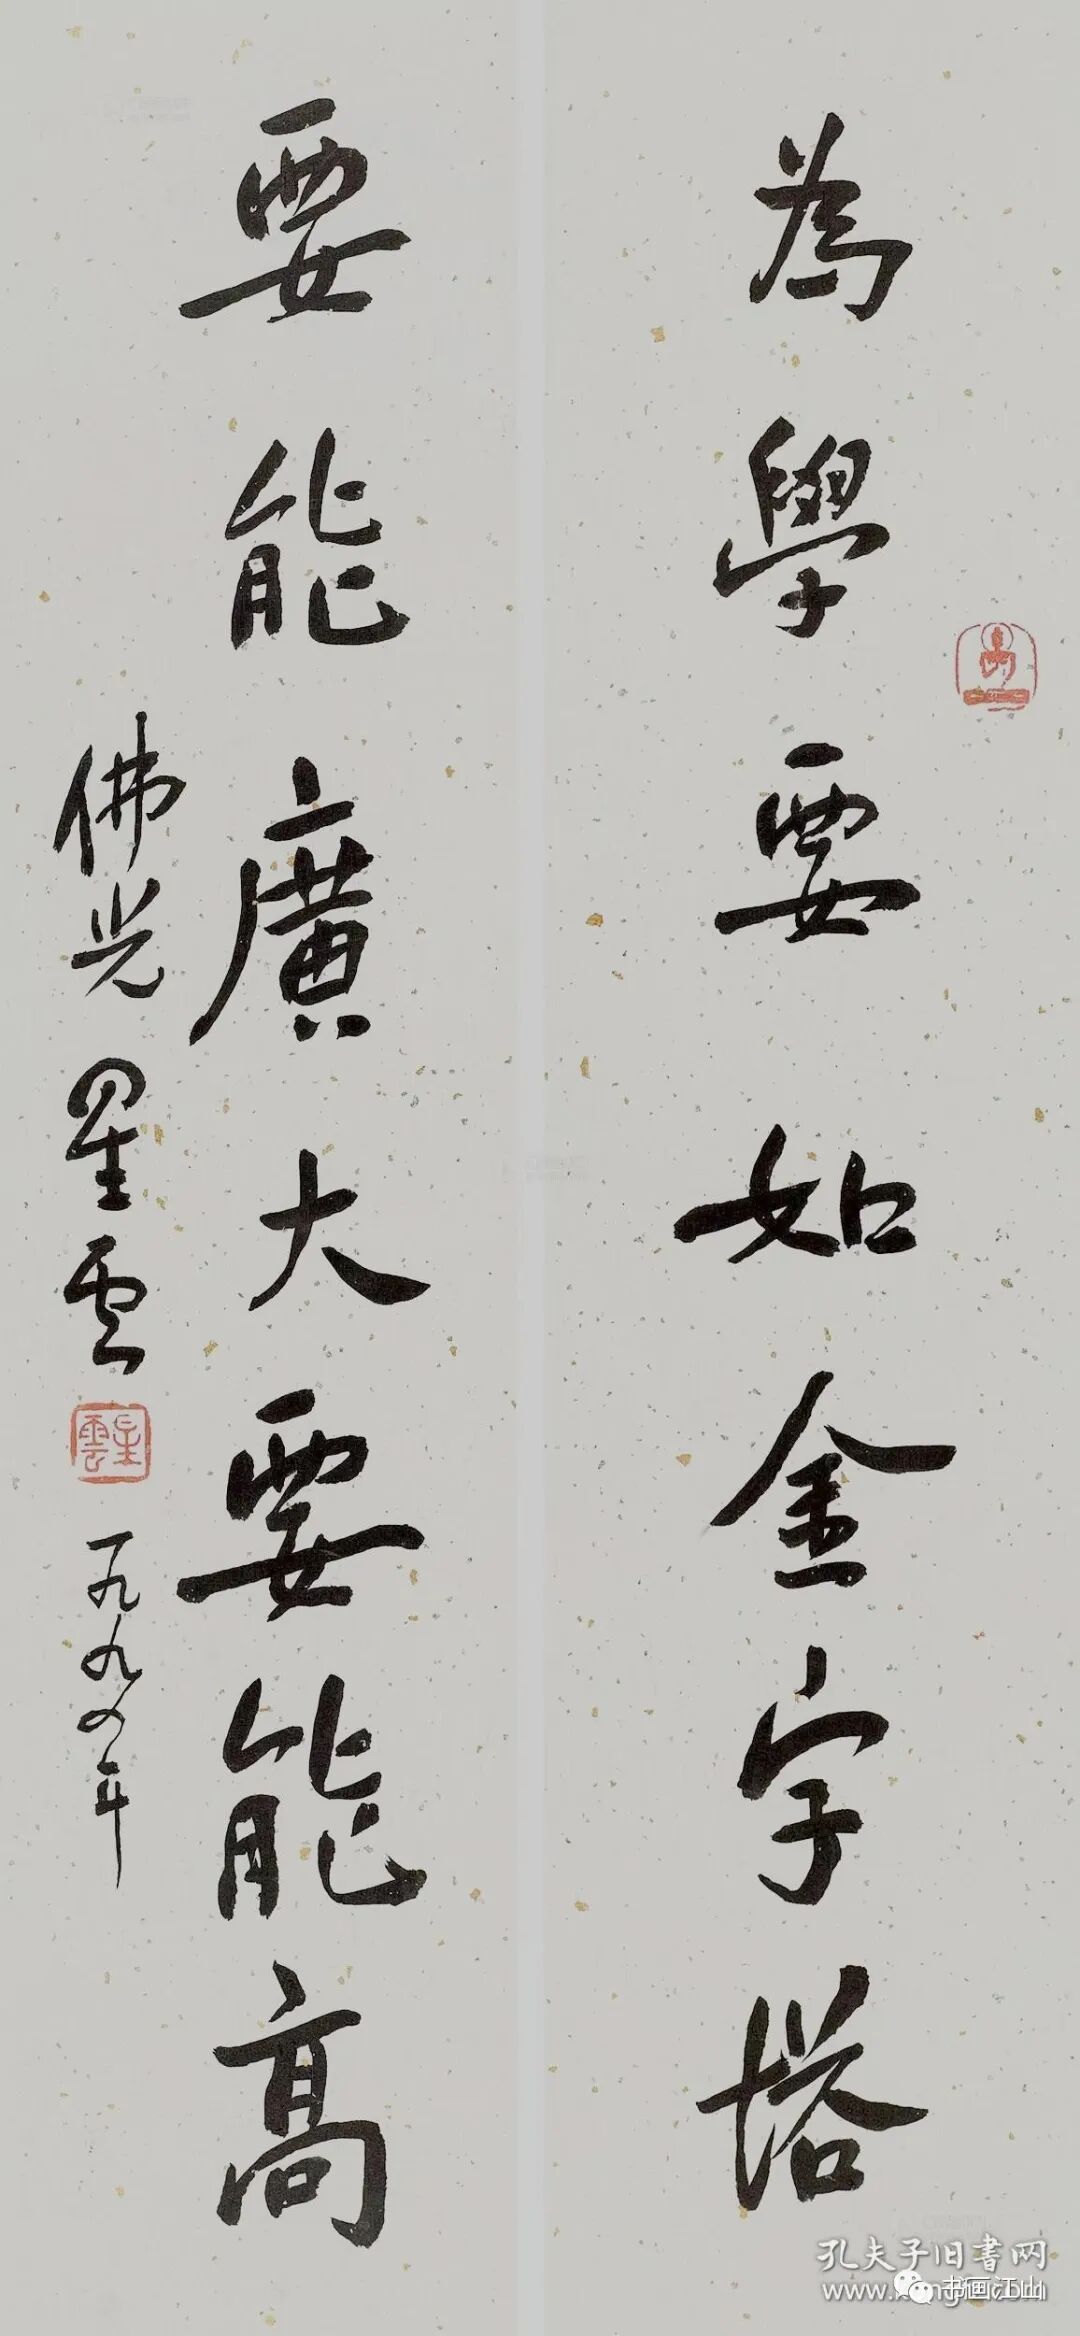 為學要如金字塔
要能廣大要能高
佛光星雲
星雲
一九九八年
孔夫子旧书网
书画江山